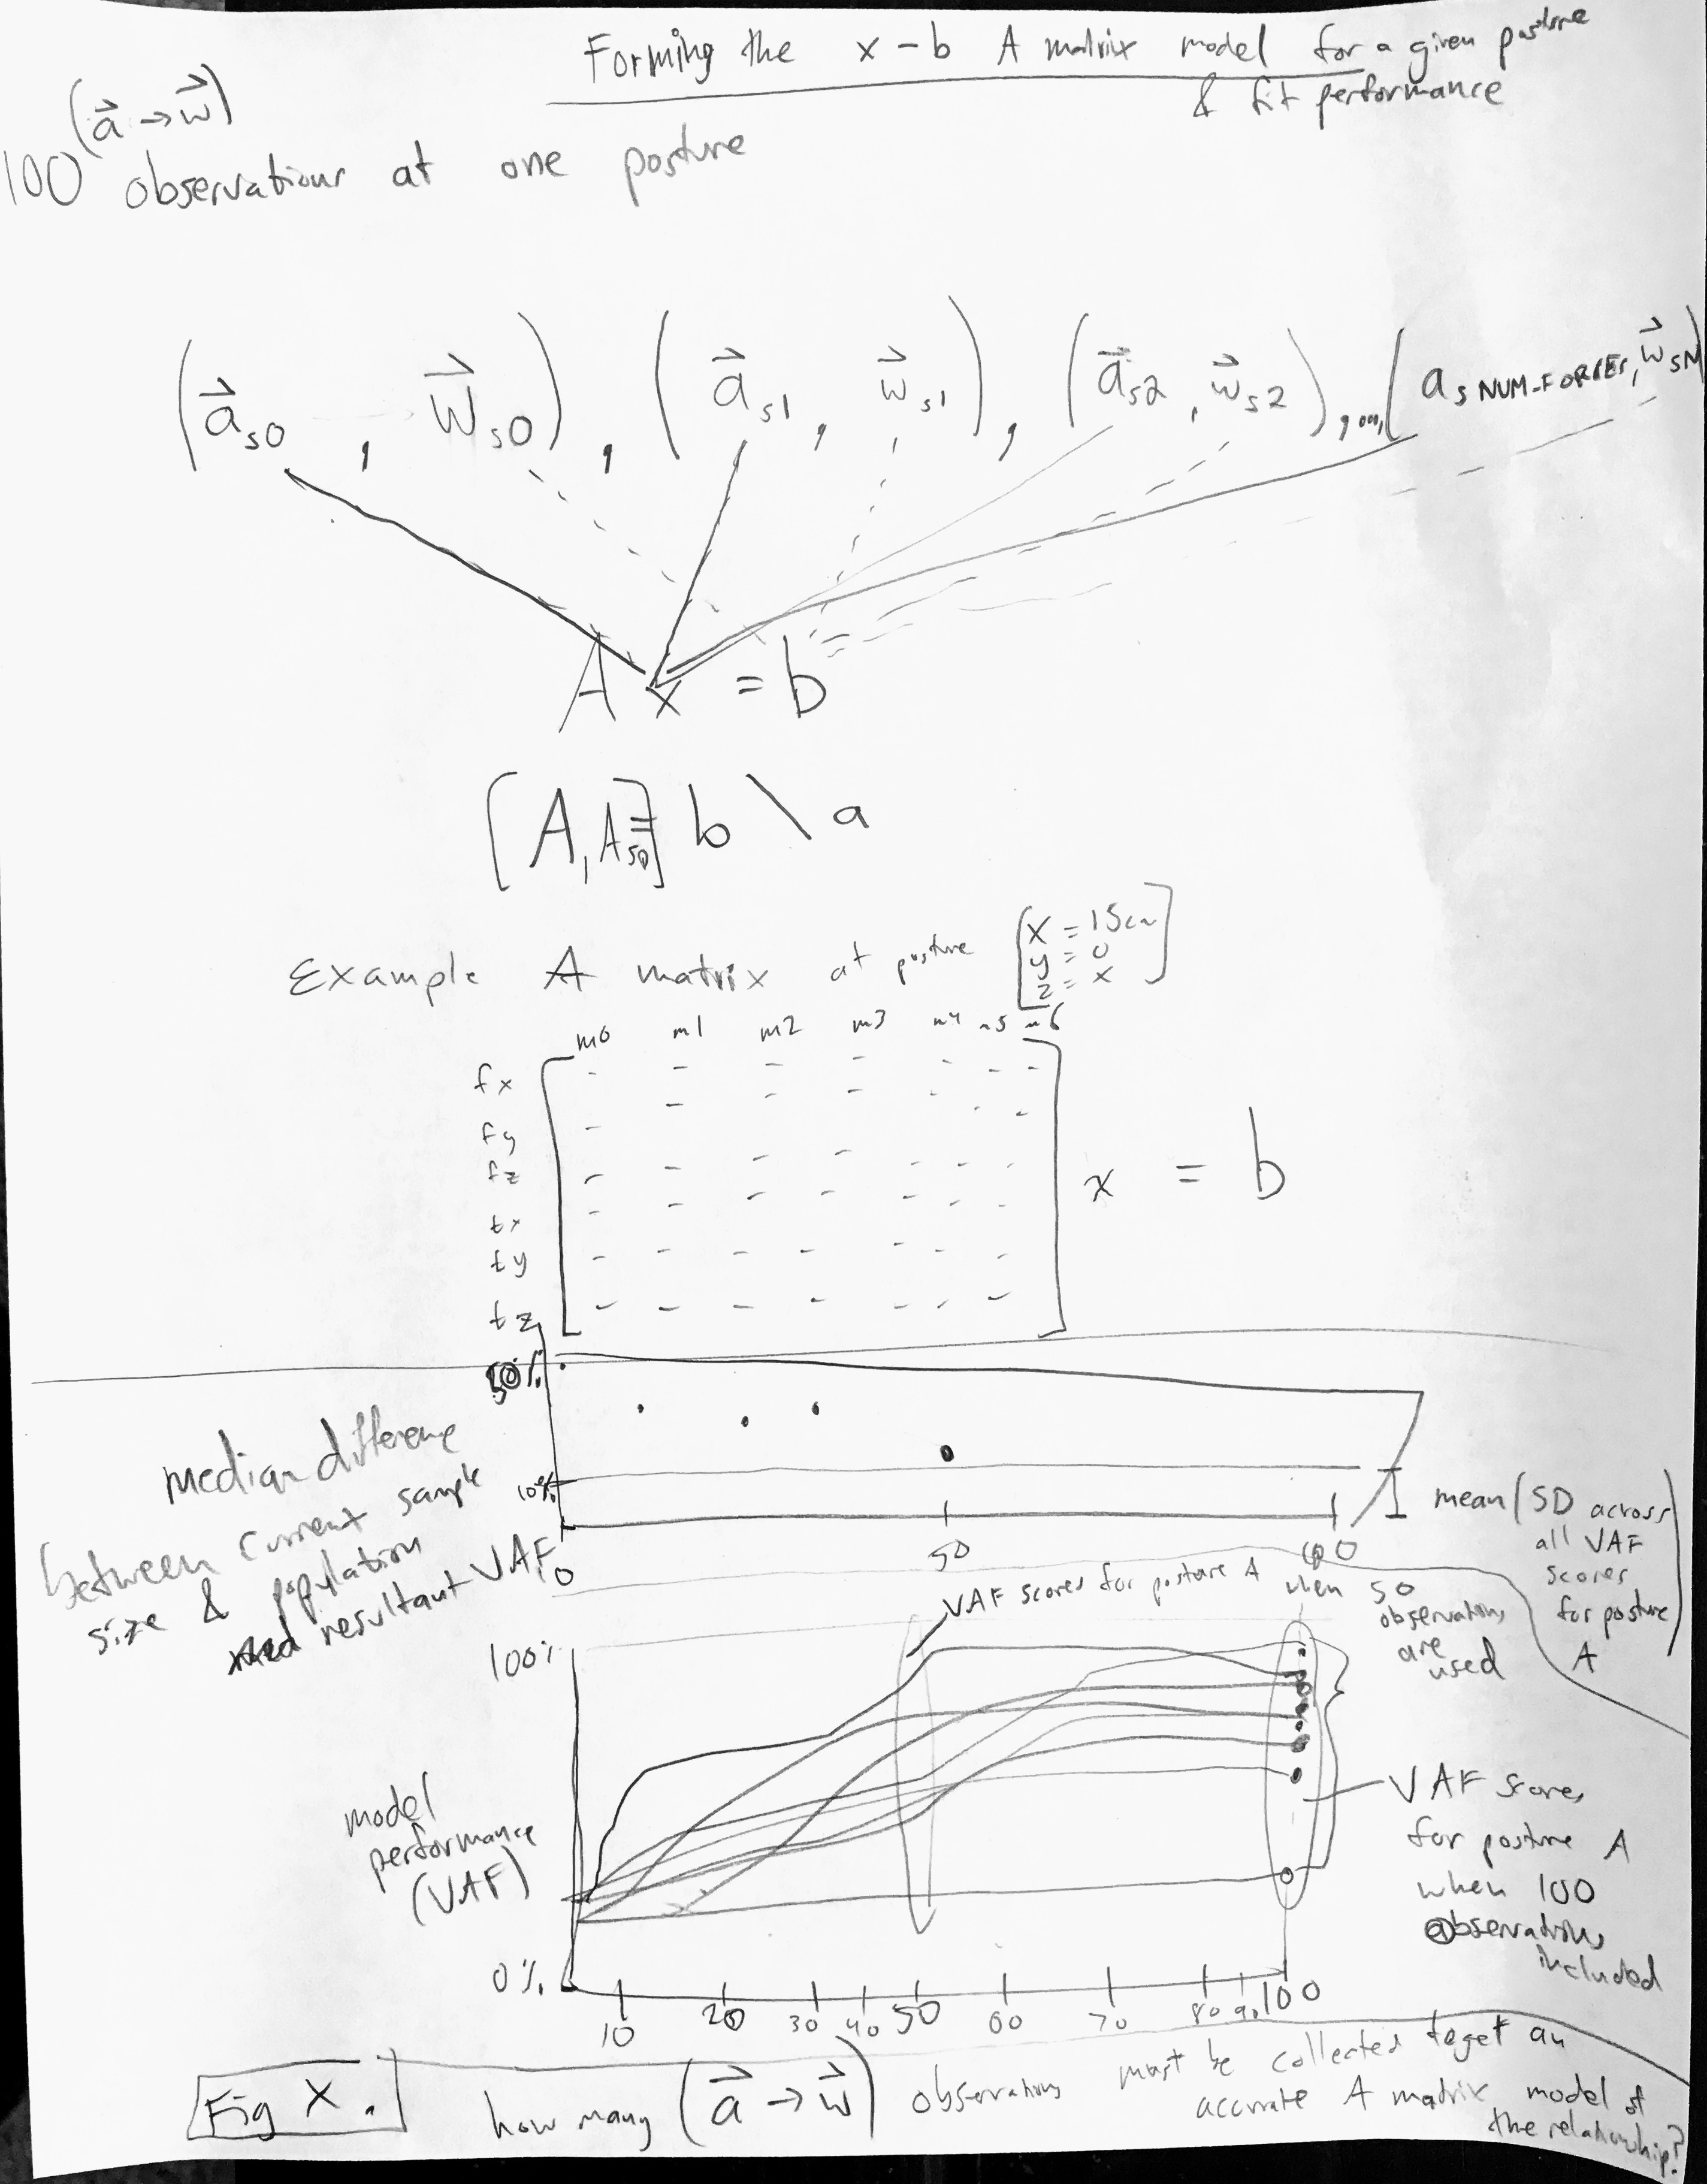 Forming the x-b A matrix model for a given posture
& fit performance
(a→w)
100 observations at one posture
(a s0, w s0), (a s1, w s1), (a s2, w s2), ..., (a s NUM-FORCES, w sN)
A x = b
[A, A SD] = b \ a
Example A matrix at posture [x = 15cm
y = 0
z = x]
m0 m1 m2 m3 m4 m5 m6
fx
fy
fz
tx
ty
tz
x = b
50%
10%
0 50 100
median difference
between current sample
size & population
resultant VAF
mean (SD across
all VAF
scores
for posture
A)
VAF scores for posture A when 50
observations
are
used
100%
model
performance
(VAF)
0%
10 20 30 40 50 60 70 80 90 100
VAF scores
for posture A
when 100
observations
included
Fig X. how many (a→w) observations must be collected to get an
accurate A matrix model of
the relationship?